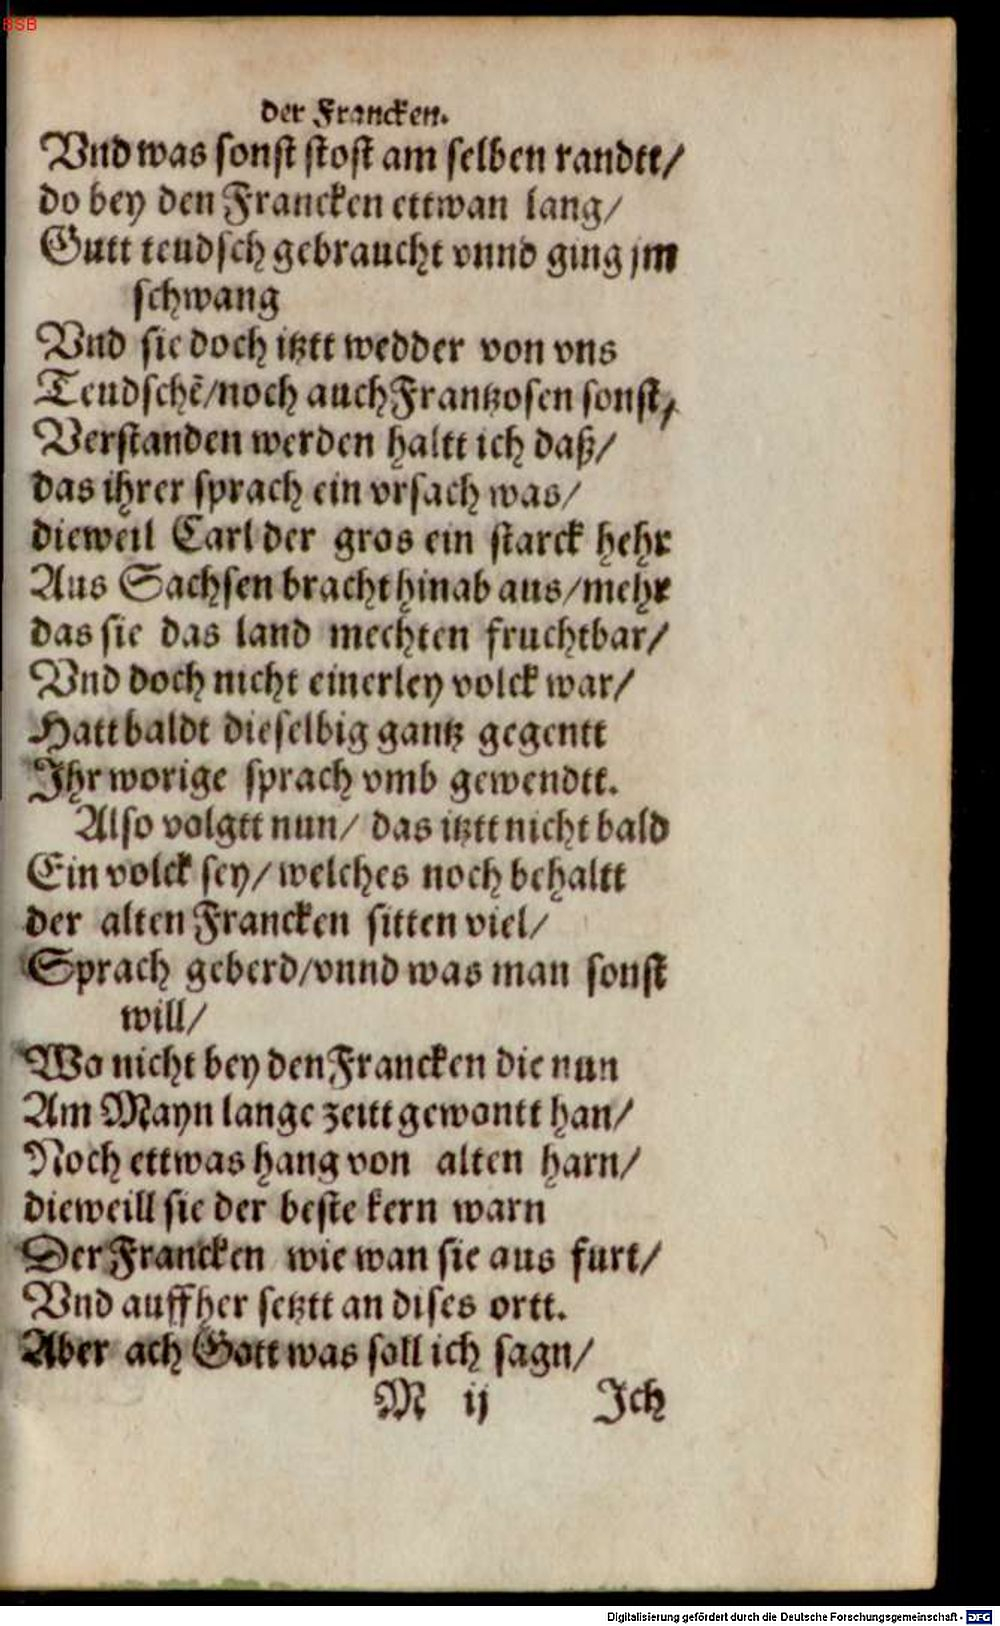 BSB
der Francken.
Vnd was sonst stost am selben randtt/
do bey den Francken ettwan lang/
Gutt teudsch gebraucht vnnd ging jm
schwang
Vnd sie doch itztt wedder von vns
Teudschē/noch auch Frantzosen sonst,
Verstanden werden haltt ich daß/
das ihrer sprach ein vrsach was/
dieweil Carl der gros ein starck hehr
Aus Sachsen bracht hinab aus/mehr
das sie das land mechten fruchtbar/
Vnd doch nicht einerley volck war/
Hatt baldt dieselbig gantz gegentt
Ihr worige sprach vmb gewendtt.
Also volgtt nun/ das itztt nicht bald
Ein volck sey/ welches noch behaltt
der alten Francken sitten viel/
Sprach geberd/vnnd was man sonst
will/
Wo nicht bey den Francken die nun
Am Mayn lange zeitt gewontt han/
Noch ettwas hang von alten harn/
dieweill sie der beste kern warn
Der Francken wie wan sie aus furt/
Vnd auffher setztt an dises ortt.
Aber ach Gott was soll ich sagn/
M ij Ich
Digitalisierung gefördert durch die Deutsche Forschungsgemeinschaft - DFG